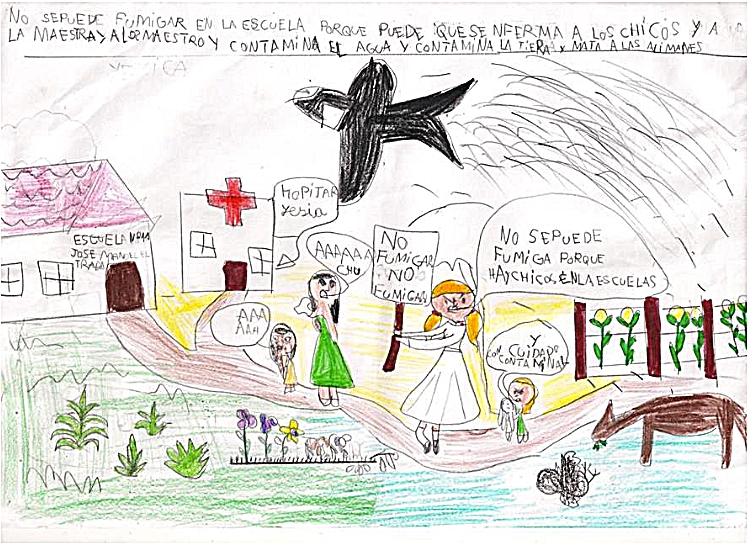 NO SEPUEDE FUMIGAR EN LA ESCUELA PORQUE PUEDE QUESE NFERMA A LOS CHICOS Y A
LA MAESTRA Y A LOS MAESTRO Y CONTAMINA EL AGUA Y CONTAMINA LA TIERA Y MATA A LAS ALIMALES
HOPITAR
yesia
ESCUELA
JOSE MANUEL
TRADA
AAAAAA
CHU
NO
FUMIGAR
NO
FUMIGAR
NO SEPUEDE
FUMIGA PORQUE
HAYCHICOS ENLA ESCUELAS
AAA
AAH
Y
CON CUIDADO
CONTAMINA